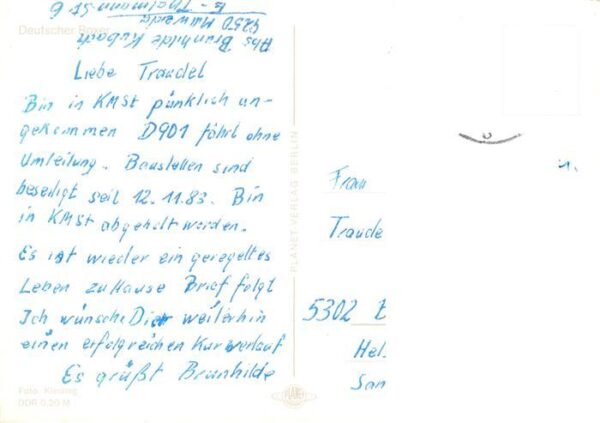 Deutscher Boxer
Abs Brunhilde Kubach
9250 Mittweida
E-Thälmann-Str 6
Liebe Traudel
Bin in KMSt pünklich an-
gekommen D901 fährt ohne
Umleitung. Baustellen sind
beseiligt seit 12.11.83. Bin
in KMSt abgeholt worden.
Es ist wieder ein geregeltes
Leben zu Hause Brief folgt
Ich wünsche Dir weiterhin
einen erfolgreichen Kurverlauf
Es grüßt Brunhilde
Foto: Kiesling
DDR 0,20 M
PLANET-VERLAG BERLIN
PLANET
Frau
Traude
5302 E
Hel.
San